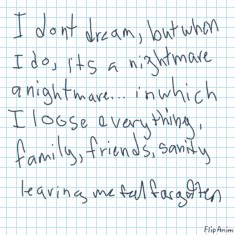 I dont dream, but when
I do, its a nightmare
a nightmare... in which
I loose everything,
family, friends, sanity
leaving me forgotten
FlipAnim